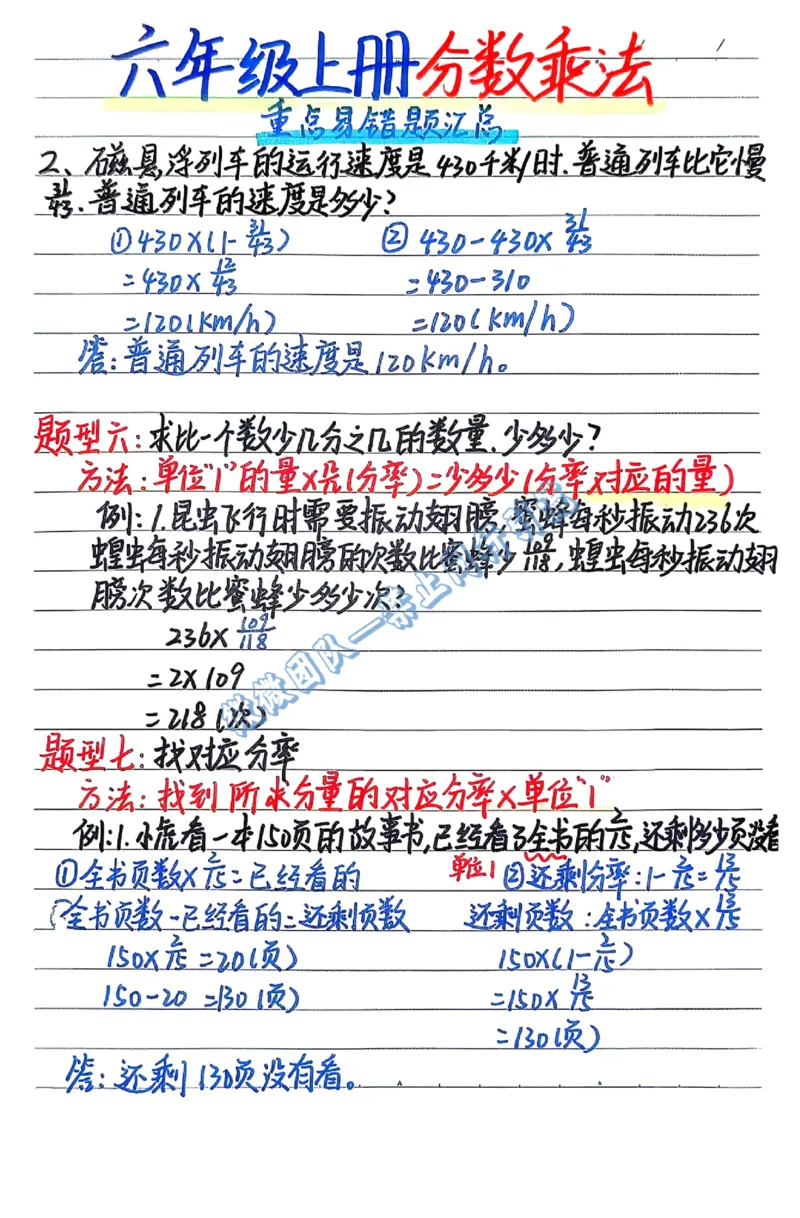 六年级上册分数乘法
重点易错题汇总
2、磁悬浮列车的运行速度是430千米/时.普通列车比它慢
31/43.普通列车的速度是多少?
①430×(1-31/43) ②430-430×31/43
=430×12/43 =430-310
=120(km/h) =120(km/h)
答:普通列车的速度是120km/h。
题型六:求比一个数少几分之几的数量.少多少?
方法:单位"1"的量×几/几(分率)=少多少(分率对应的量)
例:1.昆虫飞行时需要振动翅膀.蜜蜂每秒振动236次
蝗虫每秒振动翅膀的次数比蜜蜂少109/118,蝗虫每秒振动翅
膀次数比蜜蜂少多少次?
236×109/118
=2×109
=218(次)
题型七:找对应分率
方法:找到所求分量的对应分率×单位"1"
例:1.小虎看一本150页的故事书,已经看了全书的2/15,还剩多少页没看
①全书页数×2/15=已经看的 单位1 ②还剩分率:1-2/15=13/15
全书页数-已经看的=还剩页数 还剩页数:全书页数×13/15
150×2/15=20(页) 150×(1-2/15)
150-20=130(页) =150×13/15
=130(页)
答:还剩130页没有看。